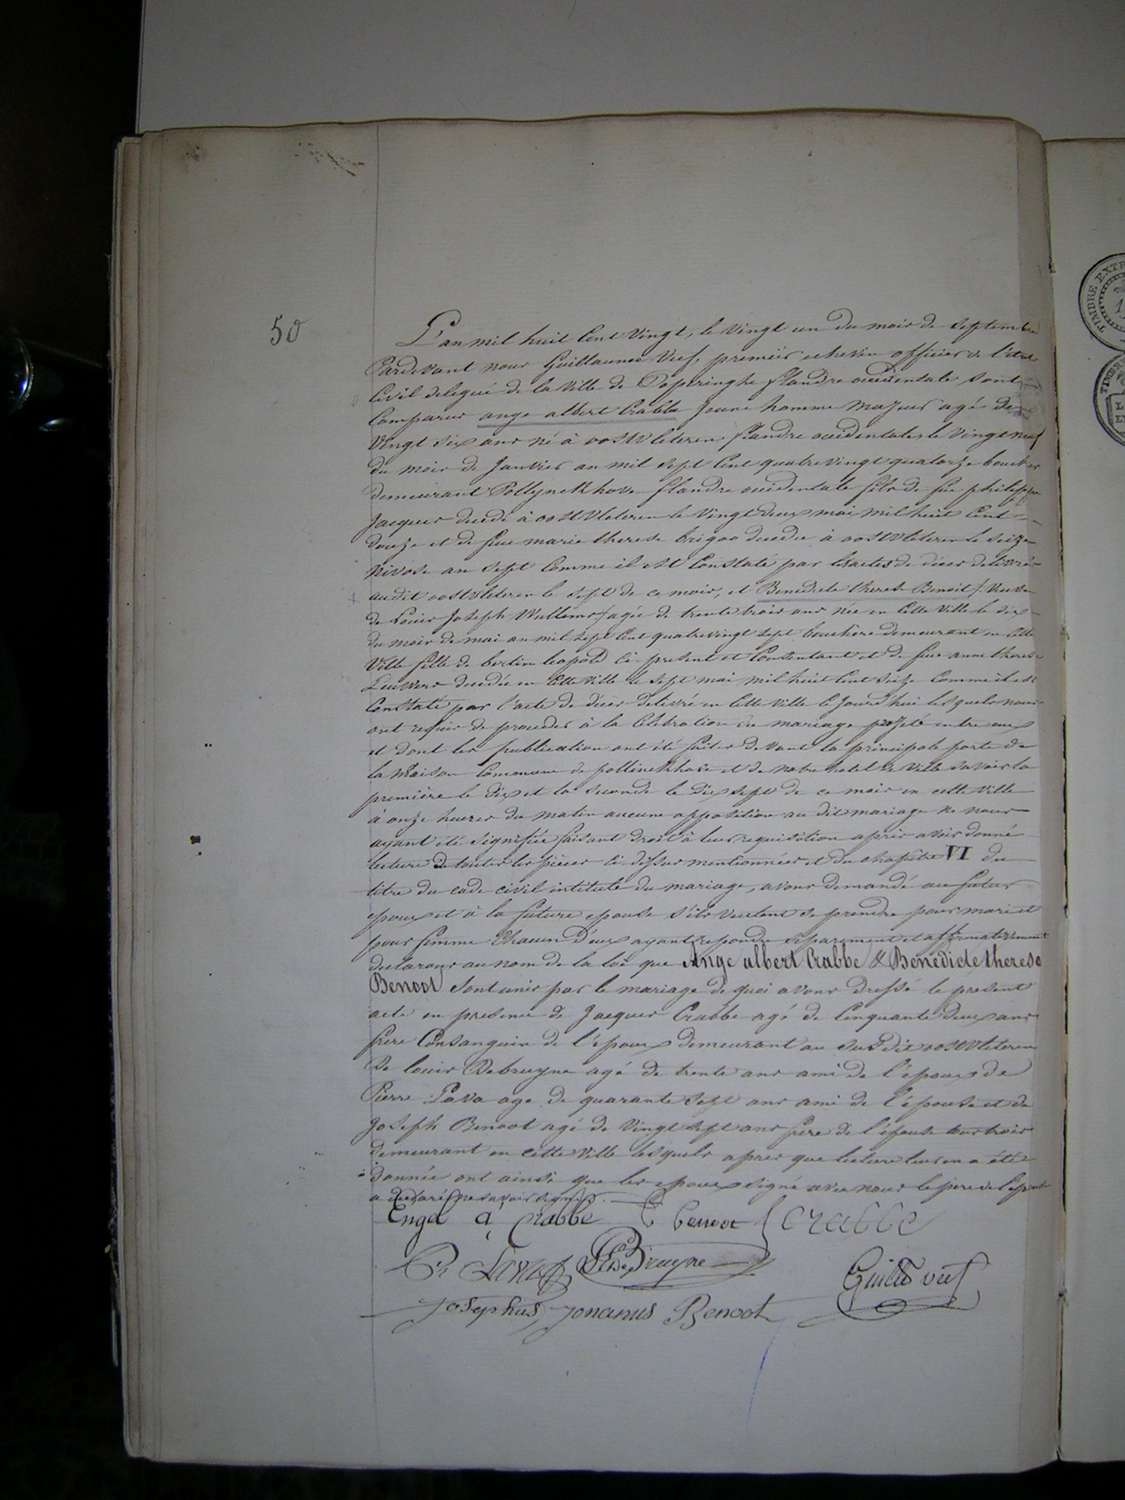 50
L'an mil huit Cent Vingt, le Vingt un du mois de Septembre
Pardevant nous Guillaume Vuf, premier echevin officier de l'état
Civil delegué de la Ville de Poperinghe flandre occidentale Sont
Comparus ange albert Crabbe Jeune homme Majeur agé de
Vingt Six ans né à oostvleteren flandre occidentale le Vingt neuf
du mois de Janvier an mil Sept Cent quatrevingt quatorze boucher
demeurant Pollynckhove flandre occidentale fils de feu philippe
Jacques decedé à oostvleteren le Vingt deux mai mil huit Cent
douze et de feue marie therese decedée à oostvleteren le Seize
Nivose an Sept Comme il est Constaté par les actes de décès delivré
audit oostvleteren le Sept de ce mois, et Benedicte therese Benoot, Veuve
de Louis Joseph Wullems agée de trente trois ans née en Cette Ville le dix
du mois de mai an mil Sept Cent quatrevingt Sept bouchere demeurant en Cette
Ville fille de bertin leopold ci present et Consentant et de feue anne therese
decedée en Cette Ville le Sept mai mil huit Cent Seize Comme il est
Constaté par l'acte de décès delivré en Cette Ville le Jourd'hui lesquels nous
ont requis de proceder à la Celebration du mariage projeté entre eux
et dont les publication ont été faites devant la principale porte de
la Maison Commune de pollinckhove et de notre hotel de Ville Savoir la
première le dix et la Seconde le dix Sept de ce mois en cette Ville
à onze heures du matin aucune opposition au dit mariage ne nous
ayant été Signifiée faisant droit à leur requisition après avoir donné
lecture de toutes les pièces ci dessus mentionnées et du chapitre VI du
titre du code civil intitulé du mariage, avons demandé au futur
epoux et à la future epouse S'ils veulent se prendre pour mari et
pour femme Chacun d'eux ayant repondu Separement et affirmativement
declarons au nom de la loi que Ange albert Crabbe & Benedicte therese
Benoot Sont unis par le mariage de quoi avons dressé le present
acte en presence de Jacques Crabbe agé de Cinquante deux ans
frère Consanguin de l'epoux demeurant au Susdit oostvleteren
De louis Debruyne agé de trente ans ami de l'epoux de
Pierre Lava age de quarante Sept ans ami de l'epouse et de
Joseph Benoot agé de Vingt Sept ans frère de l'epouse tous trois
demeurant en cette Ville lesquels apres que lecture leur en a été
donnée ont ainsi que les epoux Signé avec nous le pere de l'epouse
a declaré ne savoir signer.
Engel A Crabbe B benoot J Crabbe
P. Lava L De Bruyne
Guill Vuf
Josephus Jonanus Benoot